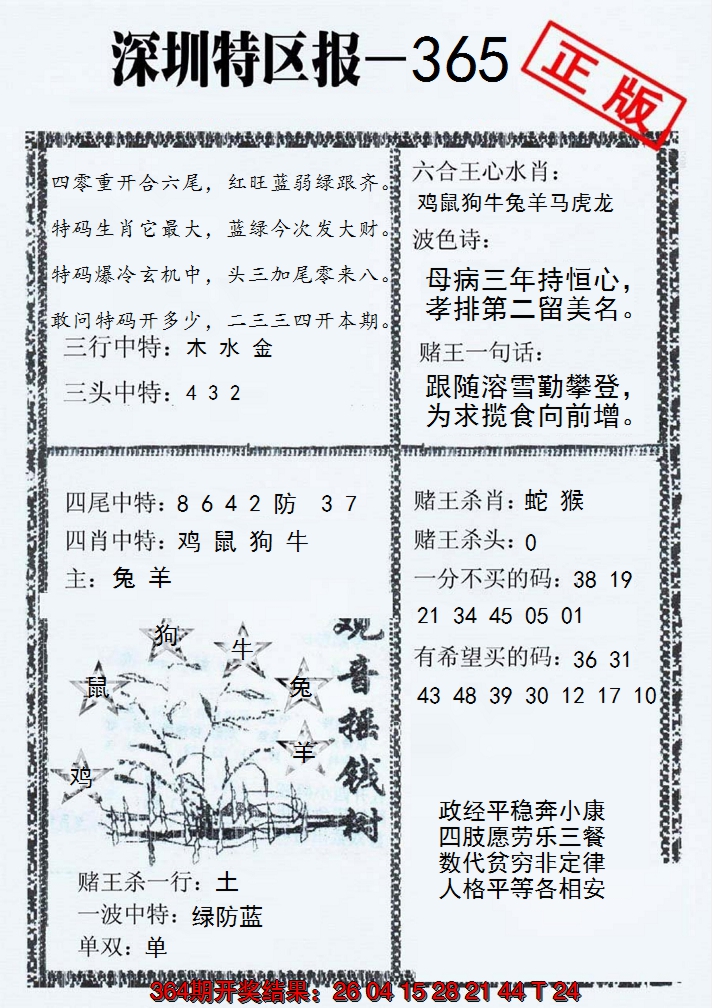 深圳特区报－365
正版
四零重开合六尾，红旺蓝弱绿跟齐。
特码生肖它最大，蓝绿今次发大财。
特码爆冷玄机中，头三加尾零来八。
敢问特码开多少，二三三四开本期。
三行中特：木 水 金
三头中特：4 3 2
六合王心水肖：
鸡鼠狗牛兔羊马虎龙
波色诗：
母病三年持恒心，
孝排第二留美名。
赌王一句话：
跟随溶雪勤攀登，
为求揽食向前增。
四尾中特：8 6 4 2 防 3 7
四肖中特：鸡 鼠 狗 牛
主：兔 羊
狗
牛
鼠
兔
羊
鸡
观音摇钱树
赌王杀一行：土
一波中特：绿防蓝
单双：单
赌王杀肖：蛇 猴
赌王杀头：0
一分不买的码：38 19
21 34 45 05 01
有希望买的码：36 31
43 48 39 30 12 17 10
政经平稳奔小康
四肢愿劳乐三餐
数代贫穷非定律
人格平等各相安
364期开奖结果：26 04 15 28 21 44 T 24